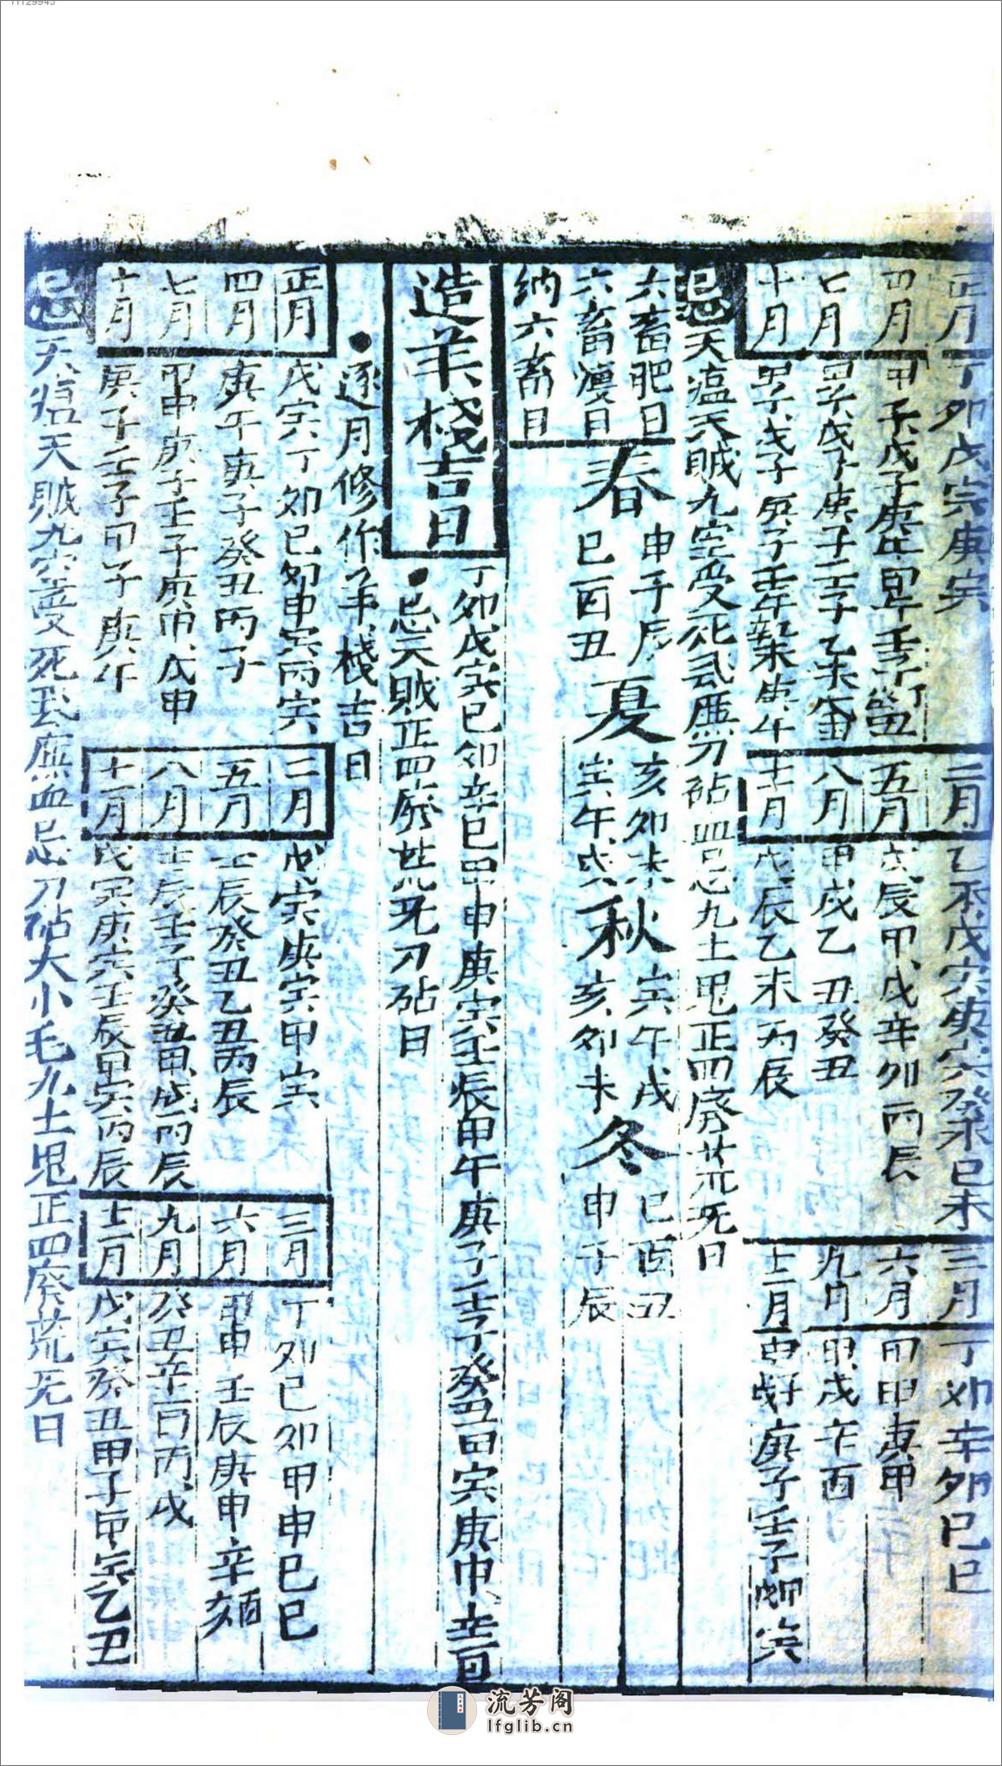 正月丁卯戊寅庚寅
二月乙未戊寅庚寅癸未己未
三月丁卯辛卯己巳
四月甲子戊子庚
五月戊辰甲戌辛卯丙辰
六月甲申庚申
七月甲子戊子庚子壬子乙未
八月甲戌乙丑癸丑
九月甲戌辛酉
十月甲子戊子庚子壬午
十一月戊辰乙未丙辰
十二月庚子壬子
忌天瘟天賊九空受死飛廉刀砧血忌九土鬼正四廢荒死日
六畜肥日
六畜瘦日
納六畜日
春 申子辰
巳酉丑
夏 亥卯未
寅午戌
秋 寅午戌
亥卯未
冬 巳酉丑
申子辰
造羊棧吉日
丁卯戊寅己卯辛巳甲申庚寅壬辰甲午庚子壬子癸丑甲寅庚申辛酉
●忌天賊正四廢荒死刀砧日
●逐月修作羊棧吉日
正月戊寅丁卯己卯甲寅丙寅
二月戊寅庚寅甲寅
三月丁卯己卯甲申己巳
四月庚午庚子癸丑丙子
五月壬辰癸丑乙丑丙辰
六月甲申壬辰庚申辛
七月甲申庚子壬子庚申戊申
八月壬辰壬子癸丑甲戌丙辰
九月癸丑辛酉丙戌
十月庚子壬子甲子庚午
十一月戊寅庚寅壬辰甲寅丙辰
十二月戊寅癸丑甲子甲寅乙丑
忌天瘟天賊九空受死飛廉血忌刀砧大小耗九土鬼正四廢荒死日
流芳阁
lfglib.cn